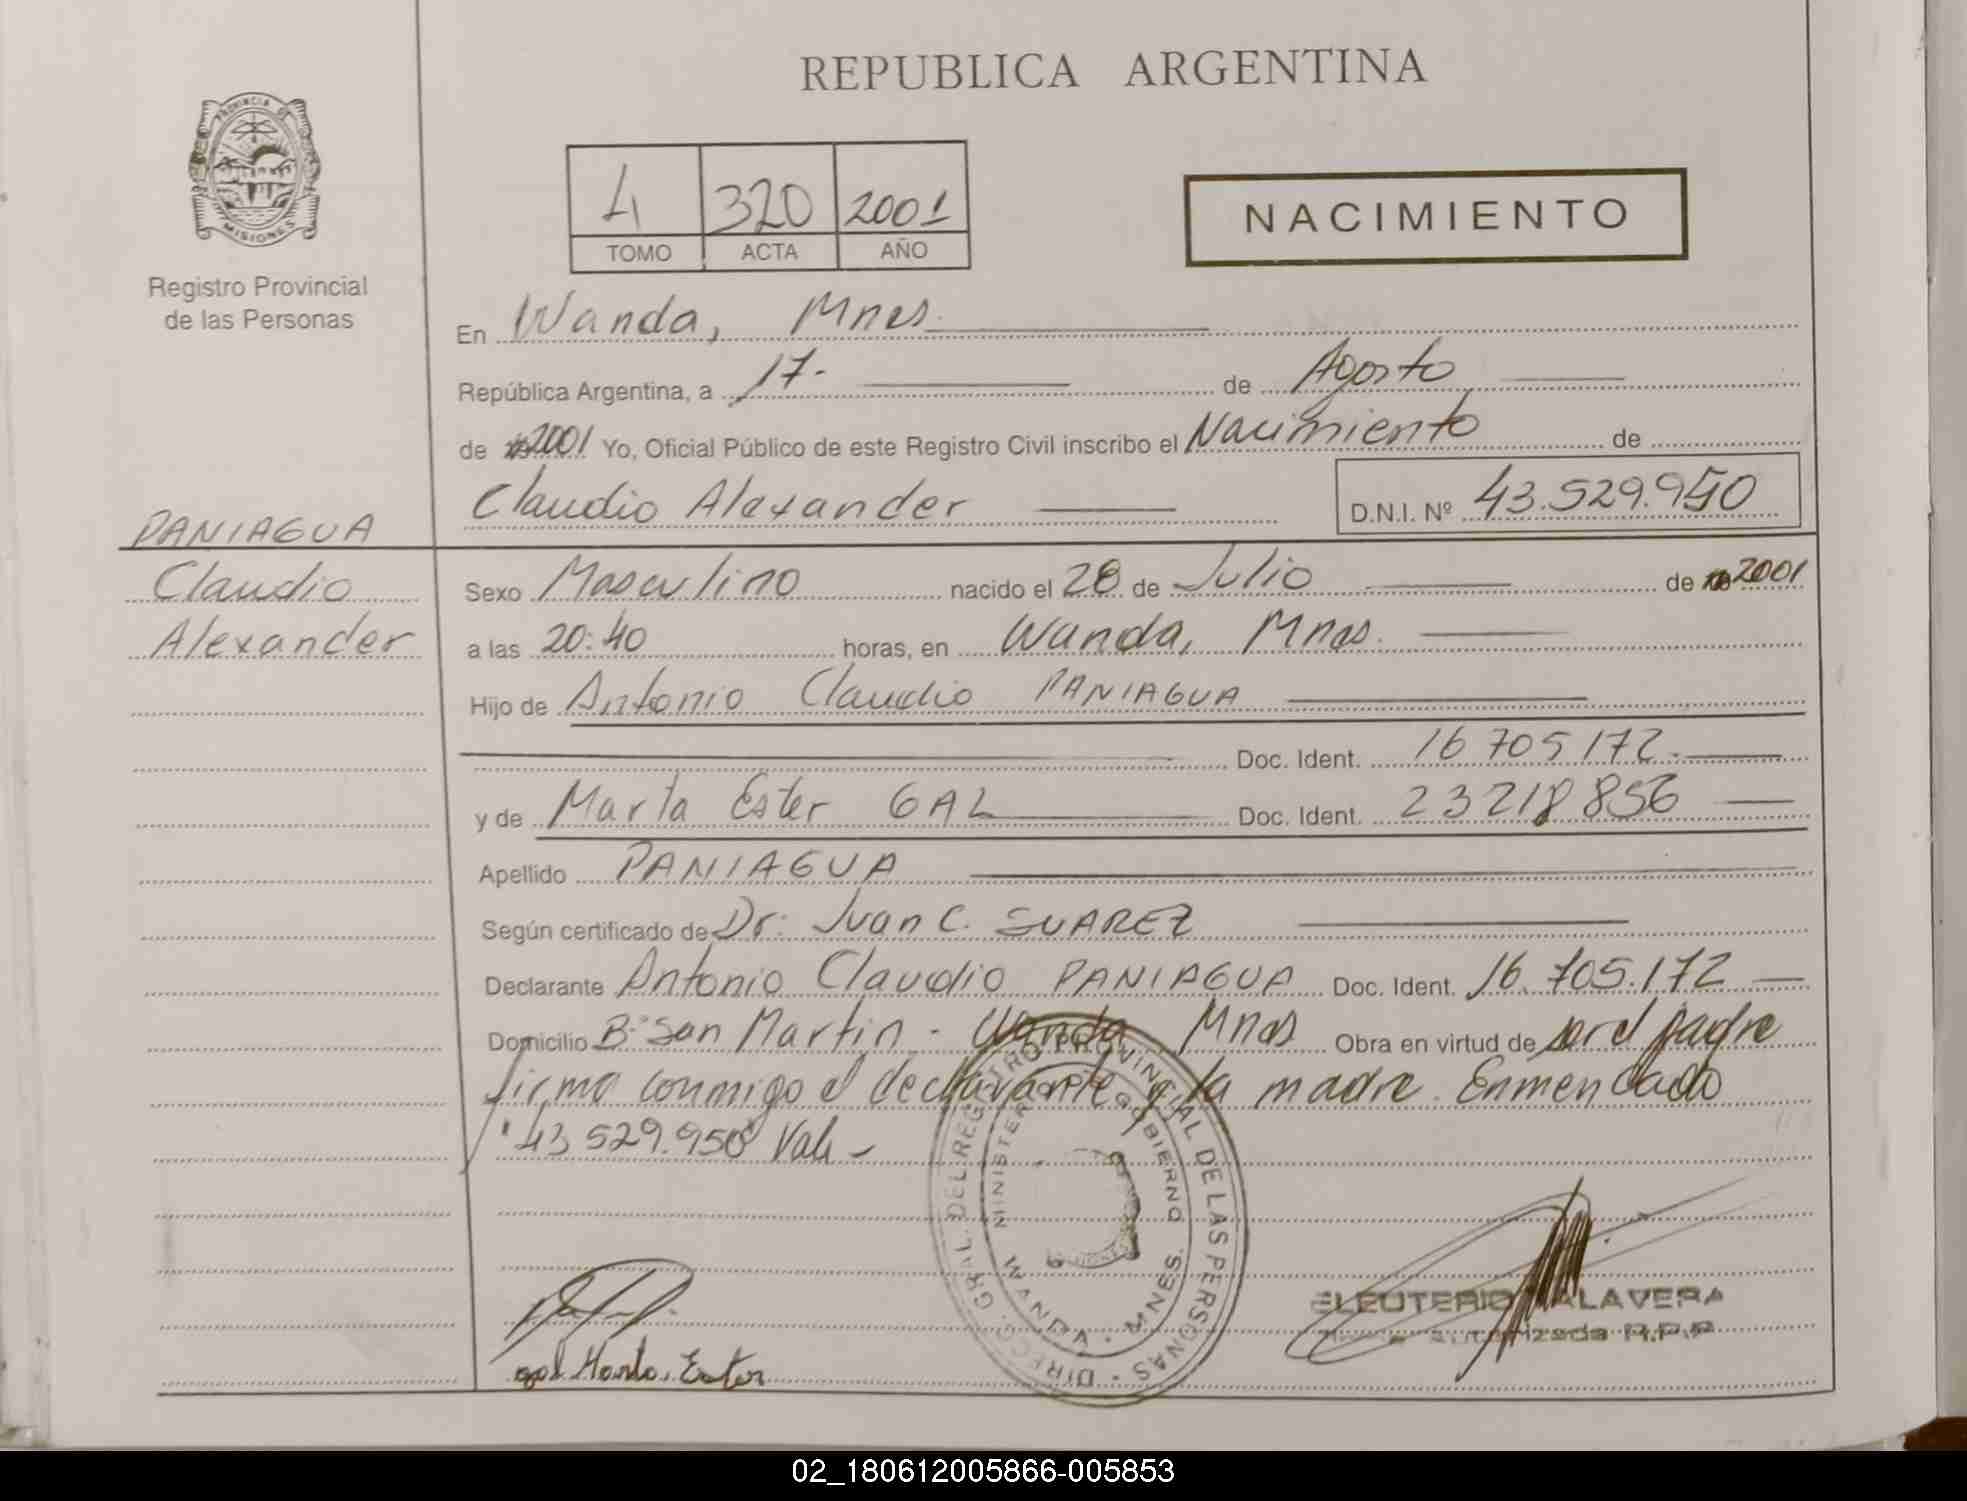 REPUBLICA ARGENTINA
PROVINCIA DE
MISIONES
Registro Provincial
de las Personas
4 320 2001
TOMO ACTA AÑO
NACIMIENTO
En Wanda, Mnes.
República Argentina, a 17. de Agosto
de 2001 Yo, Oficial Público de este Registro Civil inscribo el Nacimiento de
Claudio Alexander D.N.I. Nº 43.529.950
PANIAGUA
Claudio
Alexander
Sexo Masculino nacido el 28 de Julio de 2001
a las 20:40 horas, en Wanda, Mnes.
Hijo de Antonio Claudio PANIAGUA
Doc. Ident. 16 705 172.
y de Marta Ester GAL Doc. Ident. 23 218 856
Apellido PANIAGUA
Según certificado de Dr. Juan C. SUAREZ
Declarante Antonio Claudio PANIAGUA Doc. Ident. 16.705.172
Domicilio Bº San Martin - Wanda Mnes Obra en virtud de ser el padre
firma conmigo el declarante y la madre. Enmendado
"43 529.950" Vale -
DIREC. GRAL. DEL REGISTRO PROVINCIAL DE LAS PERSONAS
MINISTERIO DE GOBIERNO
WANDA - MNES.
gal Marta Ester
ELEUTERIO TALAVERA
Autorizada R.P.P
02_180612005866-005853